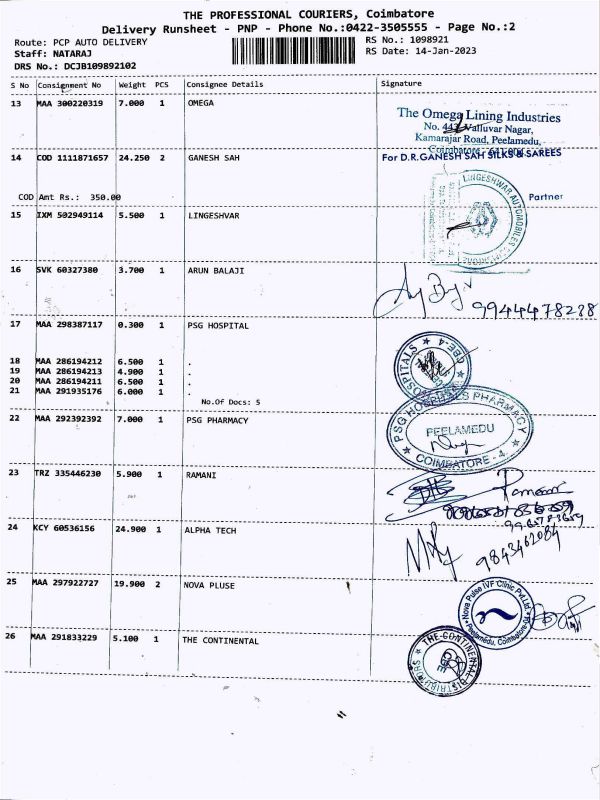 THE PROFESSIONAL COURIERS, Coimbatore
Delivery Runsheet - PNP - Phone No.:0422-3505555 - Page No.:2
Route: PCP AUTO DELIVERY
Staff: NATARAJ
DRS No.: DCJB109892102
RS No.: 1098921
RS Date: 14-Jan-2023
S No Consignment No Weight PCS Consignee Details Signature
13 MAA 300220319 7.000 1 OMEGA
The Omega Lining Industries
Valluvar Nagar,
Kamarajar Road, Peelamedu,
14 COD 1111871657 24.250 2 GANESH SAH
For D.R.GANESH SAH SILKS & SAREES
COD Amt Rs.: 350.00
Partner
15 IXM 502949114 5.500 1 LINGESHVAR
LINGESHWAR AUTOMOBILES
16 SVK 60327380 3.700 1 ARUN BALAJI
9944478238
17 MAA 298387117 0.300 1 PSG HOSPITAL
18 MAA 286194212 6.500 1 .
19 MAA 286194213 4.900 1 .
20 MAA 286194211 6.500 1 .
21 MAA 291935176 6.000 1 .
No.Of Docs: 5
HOSPITALS
22 MAA 292392392 7.000 1 PSG PHARMACY
PSG HOSPITALS PHARMACY
PEELAMEDU
COIMBATORE - 4
23 TRZ 335446230 5.900 1 RAMANI
24 KCY 60536156 24.900 1 ALPHA TECH
9843462084
25 MAA 297922727 19.900 2 NOVA PLUSE
Nova Pulse IVF Clinic Pvt.Ltd
Peelamedu, Coimbatore
26 MAA 291833229 5.100 1 THE CONTINENTAL
THE CONTINENTAL DISTRIBUTORS